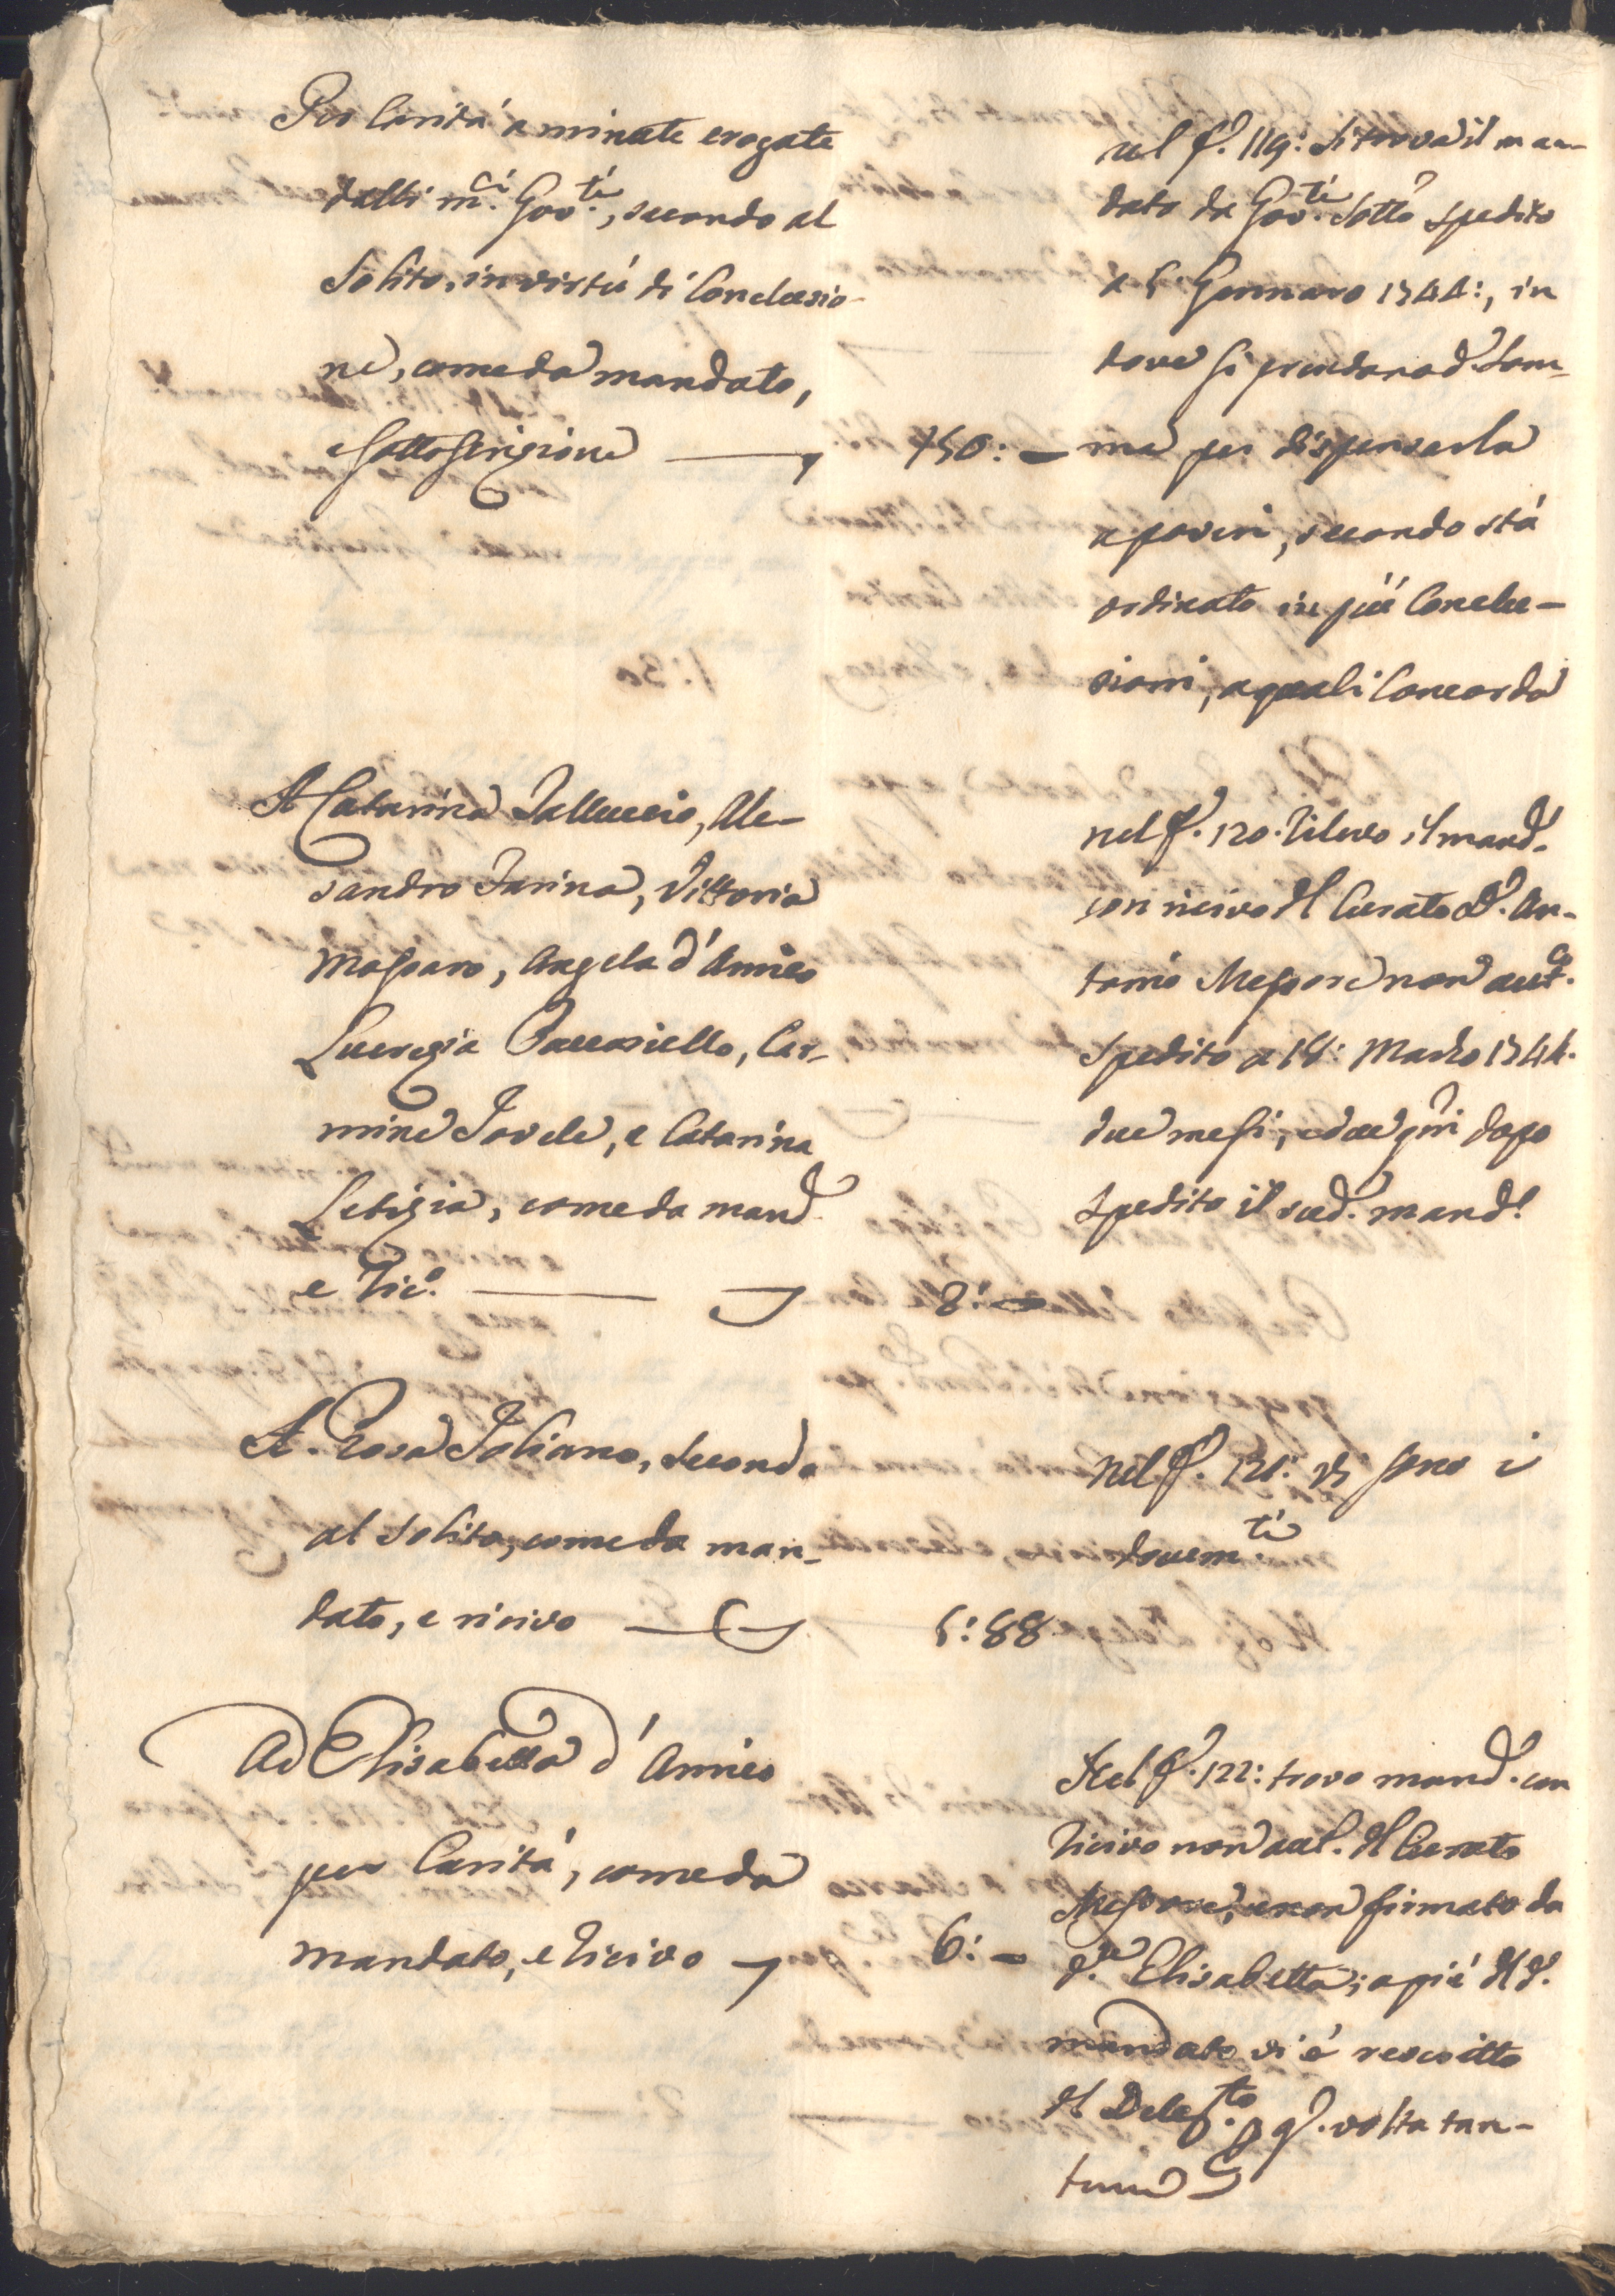 Per Carità a minate erogate
dalli m.ci Gov.ti, secondo al
Solito, in virtù di Conclusio-
ne, come da mandato,
e sottoscrizione
150: -
nel f. 119: si trova il man-
dato da Gov.ti sotto spedito
a 5 Gennaro 1744:, in
dove si prendano d. som-
ma per dispensarla
a poveri, secondo stà
ordinato in più Conclu-
sioni, a quali Concorda
A Catarina Ialluccio, Ale-
sandro Farina, Vittoria
Massaro, Angela d'Amico
Lucrezia Paccasiello, Car-
mine Iovele, e Catarina
Letizia, come da mand.
e ric.o
8: -
nel f. 120. rilevo il mand.
con ricivo del Curato D. An-
tonio Messore non aut.co
spedito a 18: Marzo 1744.
due mesi, e due gni dopo
spedito il sud. mand.
A Rosa Ioliano, secondo
al solito, come da man-
dato, e ricivo
5:88
nel f. 121: vi sono i
docum.ti
Ad Elisabetta d'Amico
per Carità, come da
mandato, e ricivo
6: -
Nel f. 122: trovo mand. con
ricivo non aut. del Curato
Messore, e non firmato da
d.a Elisabetta; a piè del d.
mandato vi è rescritto
del Deleg.to p q. volta tan-
tum